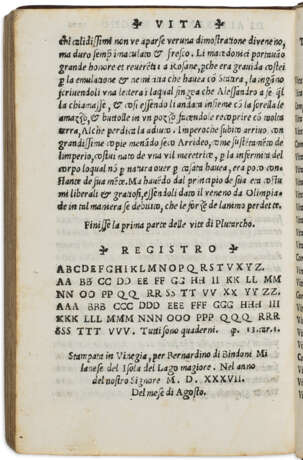 VITA
chi calidissimi non ve aparse veruna dimostratione di veneno,
ma duro semp imaculato & fresco. Li macedoni portauano
grande honore et reuerētia a Rosane, pche era grauida costei
p la emulatione & nemista che hauea cō Statira, la ingāno
scriuendoli vna letera laqual fingea che Alessandro a se ql
la chiamasse, & cosi essendoli andata insieme cō la sorella le
& butolle in vn pozzo facendole recoprire cō molta
terra, Al che perdita la adiuto. Imperoche subito arriuo con
grandissime copie menādo seco Arrideo, come sustētator de
limperio, costui nato de vna vil meretrice, p la infermita del
corpo laqual nō p natura ouer p causa hauea, era poco con
stante de sua mēte. Ma hauēdo dal principio de sua
mi liberali & gratiosi, essendoli dato il veneno da Olimpia-
de in tal maniera se debilito, che le forze de lanimo perdete.
Finisse la prima parte delle vite di Plutarcho.
REGISTRO
ABCDEFGHIKLMNOPQRSTVXYZ.
AA BB CC DD EE FF GG HH II KK LL MM
NN OO PP QQ RR SS TT VV XX YY ZZ.
AAA BBB CCC DDD EEE FFF GGG HHH III
KKK LLL MMM NNN OOO PPP QQQ RRR
SSS TTT VVV. Tutti sono quaderni.
Stampata in Vinegia, per Bernardino di Bindoni Mi
lanese del Isola del Lago magiore. Nel anno
del nostro Signore M. D. XXXVII.
Del mese di Agosto.